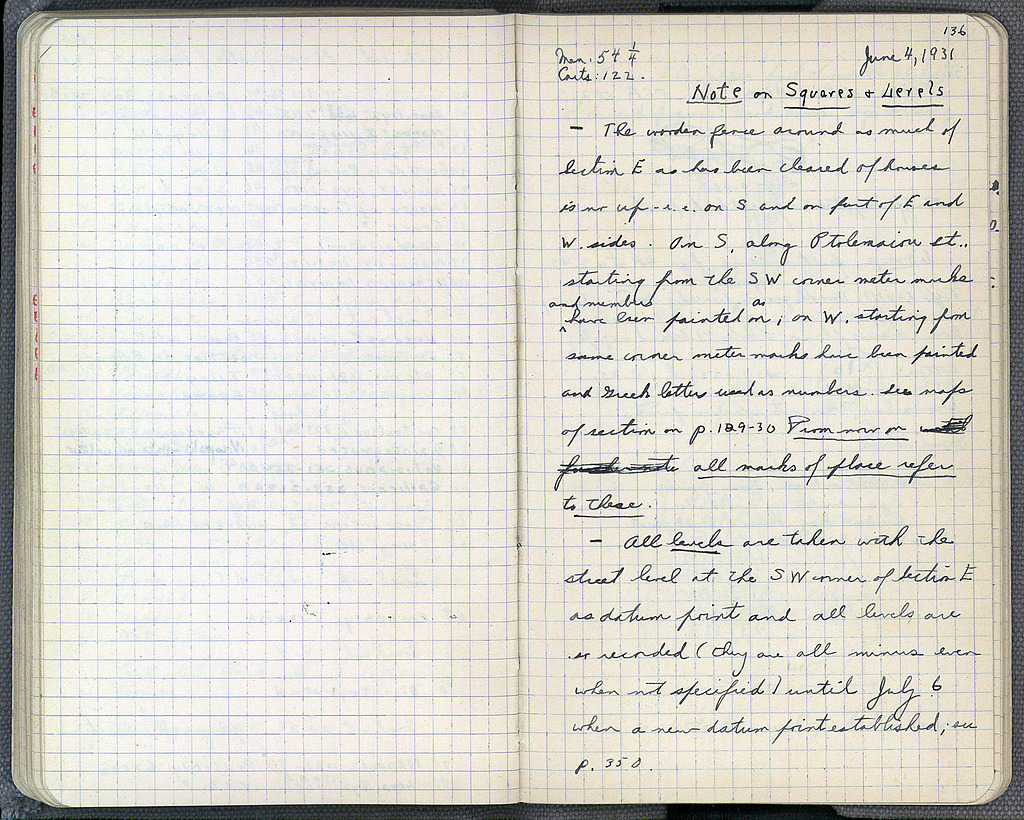 136
Men. 54 1/4
June 4, 1931
Carts: 122.
Note on Squares + Levels
— The wooden fence around as much of
Section E as has been cleared of houses
is no up - i.e. on S and on part of E and
W. sides. On S, along Ptolemaiou St.,
starting from the SW corner meter marks
and numbers as
have been painted on; on W. starting from
same corner meter marks have been painted
and Greek letters used as numbers. See maps
of section on p. 129-30 From now on
all marks of place refer
to these.
— All levels are taken with the
street level at the SW corner of Section E
as datum point and all levels are
so recorded (they are all minus even
when not specified) until July 6
when a new datum point established; see
p. 350.